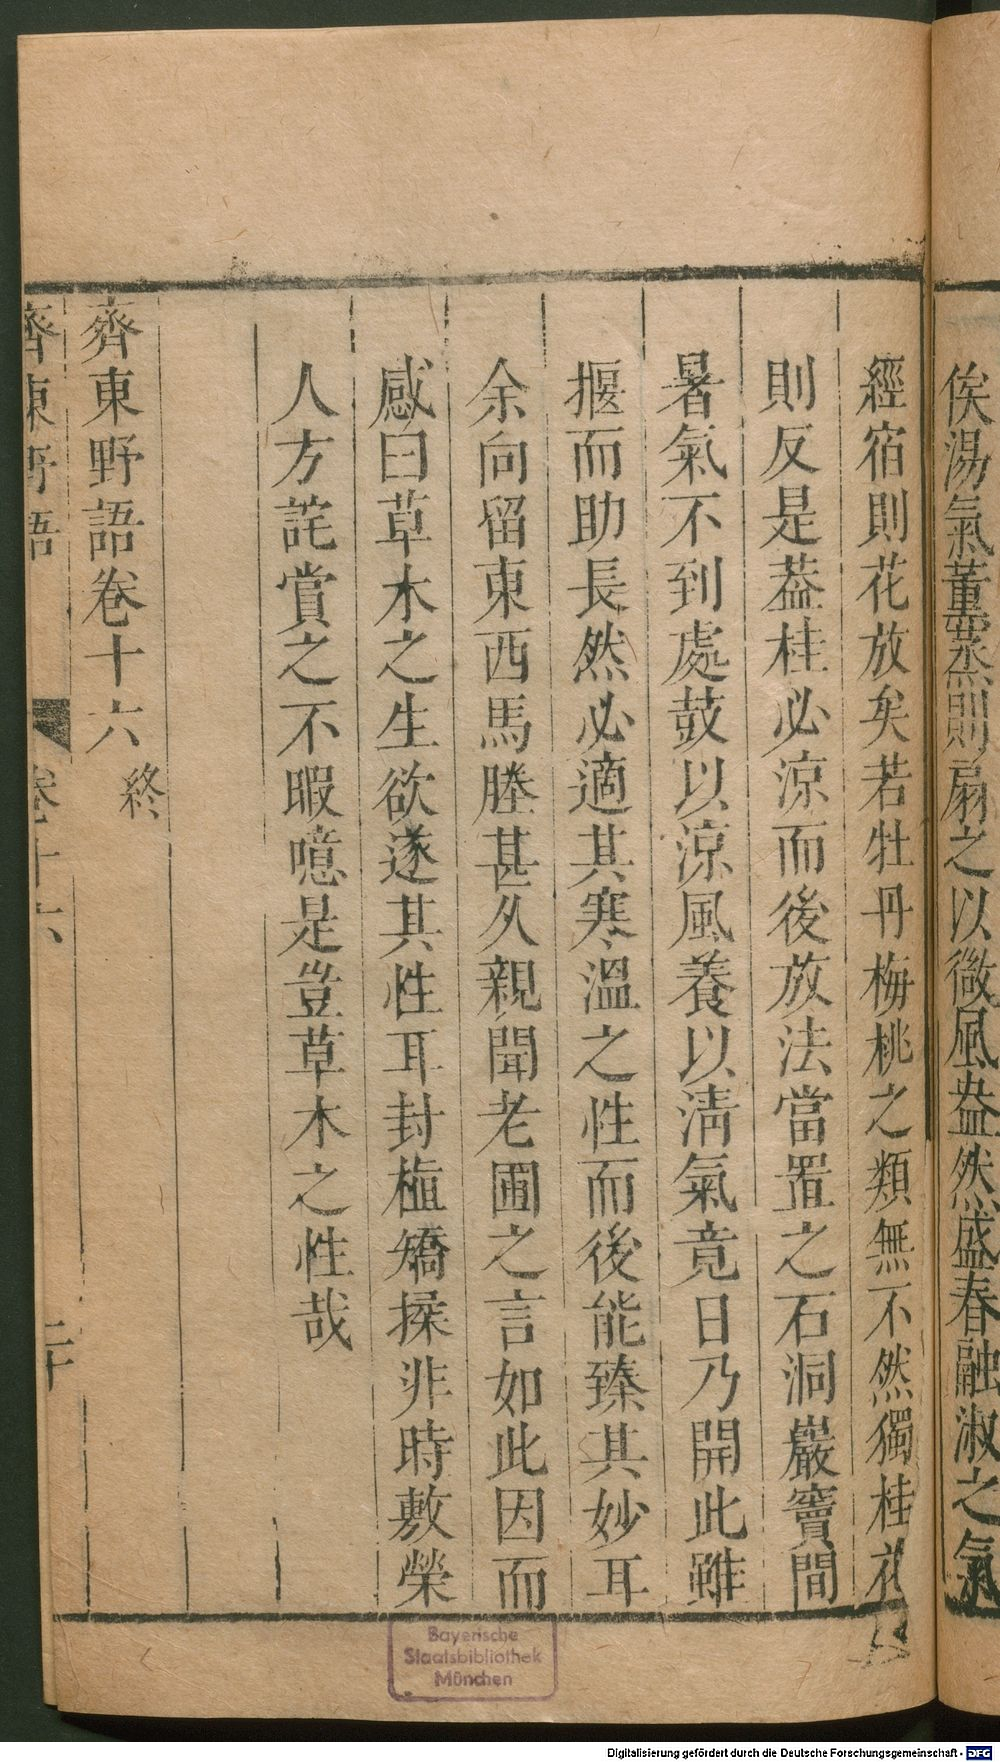 俟湯氣薰蒸則扇之以微風盎然盛春融淑之氣
經宿則花放矣若牡丹梅桃之類無不然獨桂花
則反是葢桂必涼而後放法當置之石洞巖竇間
暑氣不到處鼓以涼風養以清氣竟日乃開此雖
揠而助長然必適其寒溫之性而後能臻其妙耳
余向留東西馬塍甚久親聞老圃之言如此因而
感曰草木之生欲遂其性耳封植矯揉非時敷榮
人方詫賞之不暇噫是豈草木之性哉
齊東野語卷十六 終
齊東野語 卷十六 二十
Bayerische
Staatsbibliothek
München
Digitalisierung gefördert durch die Deutsche Forschungsgemeinschaft - DFG